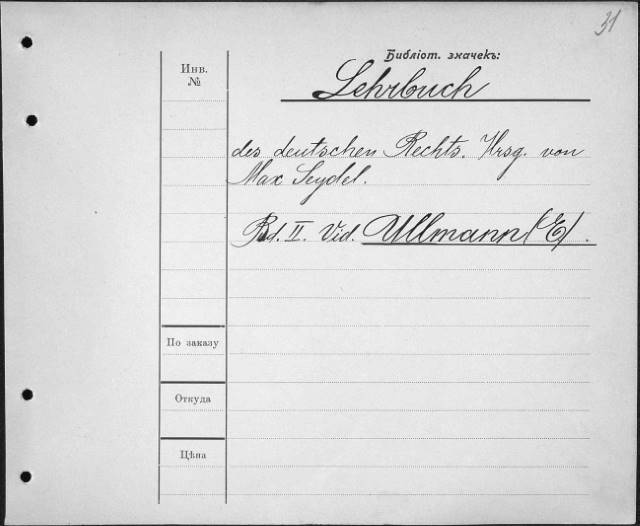 31
Библіот. значекъ:
Инв.
№
Lehrbuch
des deutschen Rechts. Hrsg. von
Max Seydel.
Bd. II. Vid. Ullmann (E).
По заказу
Откуда
Цѣна